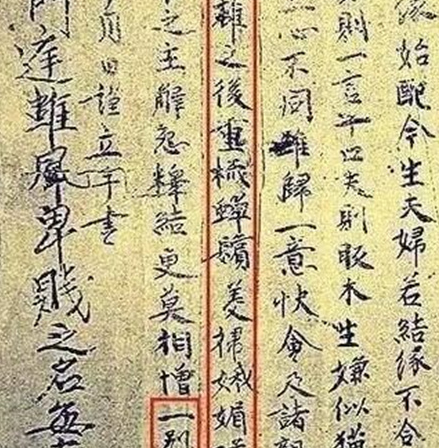 緣始配今生夫婦若結緣不合
則一言十口夫則販木生嫌似猫
心不同難歸一意快會及諸親
離之後重梳蟬鬢美掃娥媚
之主解怨釋結更莫相憎一別
月日謹立手書
雖 卑賤之名無